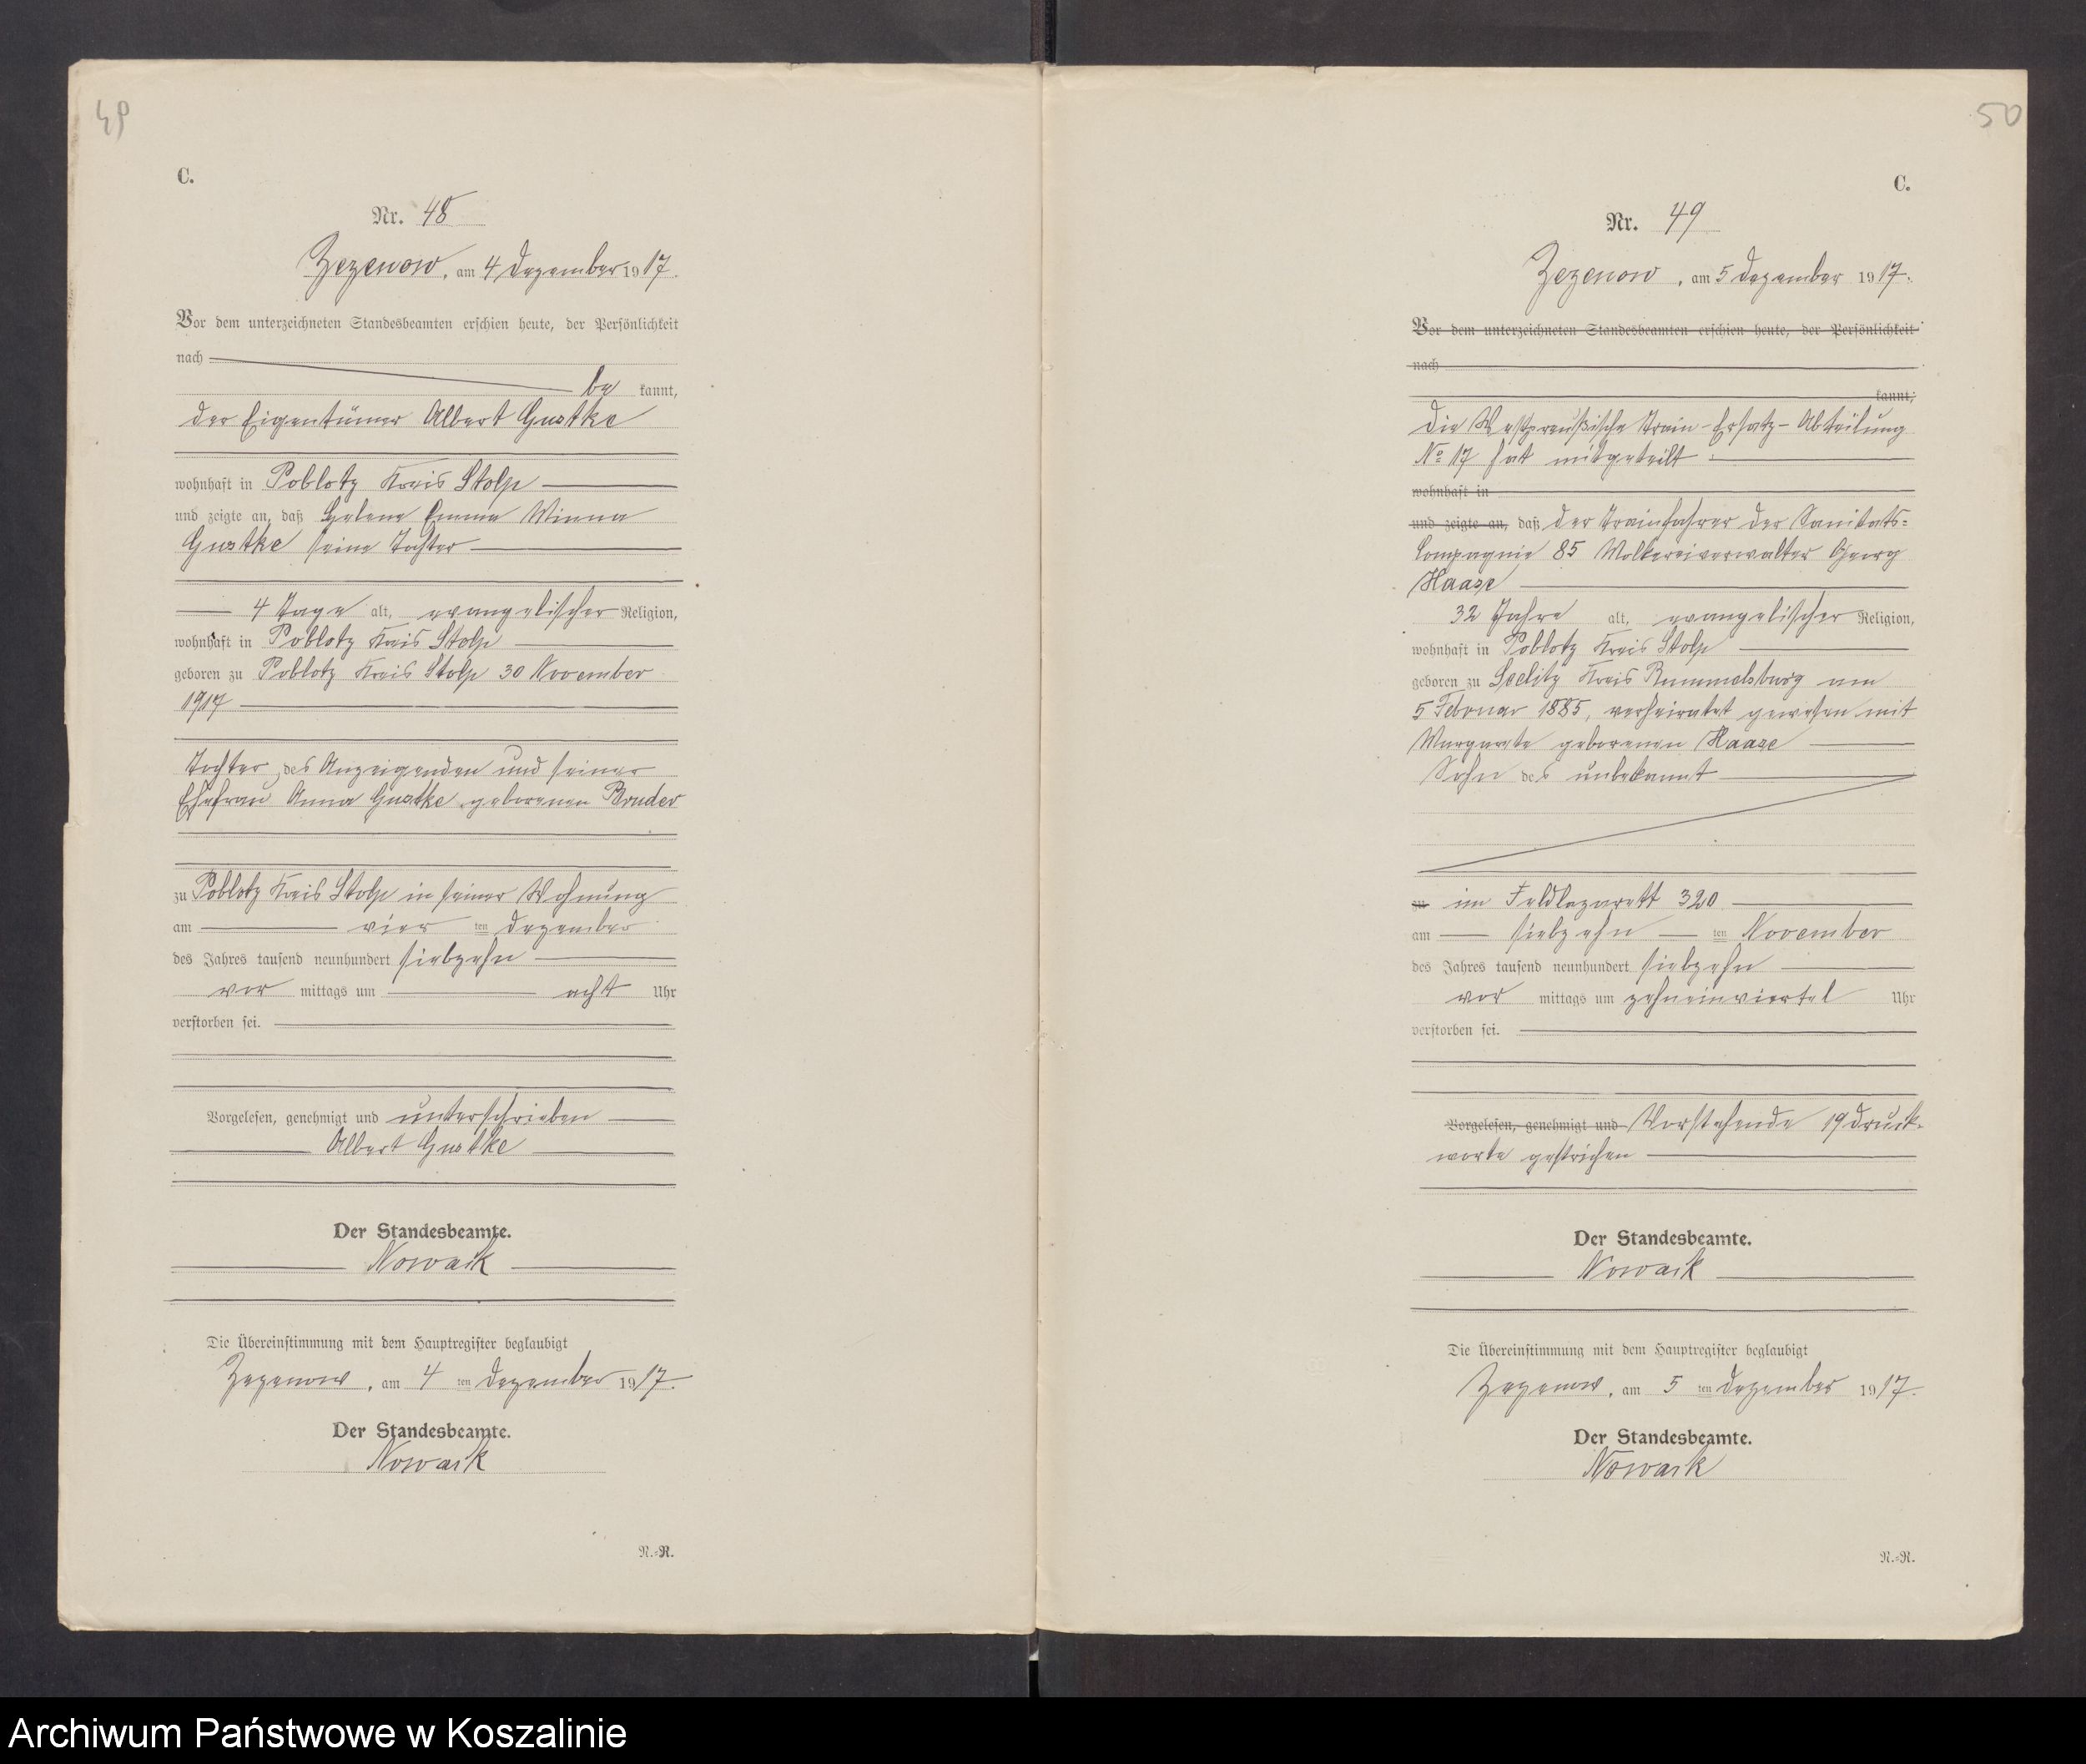 49
C.
Nr. 48
Zezenow, am 4 Dezember 1917.
Vor dem unterzeichneten Standesbeamten erschien heute, der Persönlichkeit
nach
be kannt,
der Eigentümer Albert Gustke
wohnhaft in Poblotz Kreis Stolp
und zeigte an, daß Helene Emma Minna
Gustke seine Tochter
4 Tage alt, evangelischer Religion,
wohnhaft in Poblotz Kreis Stolp
geboren zu Poblotz Kreis Stolp 30 November
1917
Tochter des Anzeigenden und seiner
Ehefrau Anna Gustke geborenen Bruder
zu Poblotz Kreis Stolp in seiner Wohnung
am vier ten Dezember
des Jahres tausend neunhundert siebzehn
vor mittags um acht Uhr
verstorben sei.
Vorgelesen, genehmigt und unterschrieben
Albert Gustke
Der Standesbeamte.
Nowack
Die Übereinstimmung mit dem Hauptregister beglaubigt
Zezenow, am 4 ten Dezember 1917.
Der Standesbeamte.
Nowack
R.=R.
50
C.
Nr. 49
Zezenow, am 5 Dezember 1917.
Vor dem unterzeichneten Standesbeamten erschien heute, der Persönlichkeit
nach
kannt,
Die Westpreußische Train-Ersatz-Abteilung
No 17 hat mitgeteilt
wohnhaft in
und zeigte an, daß der Trainfahrer der Sanitäts=
Compagnie 85 Molkereiverwalter Georg
Haase
32 Jahre alt, evangelischer Religion,
wohnhaft in Poblotz Kreis Stolp
geboren zu Seelitz Kreis Rummelsburg am
5 Februar 1885, verheiratet gewesen mit
Margarete geborenen Haase
Sohn des unbekannt
zu im Feldlazarett 320
am siebzehn ten November
des Jahres tausend neunhundert siebzehn
vor mittags um zehneinviertel Uhr
verstorben sei.
Vorgelesen, genehmigt und Vorstehende 19 Druck=
worte gestrichen
Der Standesbeamte.
Nowack
Die Übereinstimmung mit dem Hauptregister beglaubigt
Zezenow, am 5 ten Dezember 1917.
Der Standesbeamte.
Nowack
R.=R.
Archiwum Państwowe w Koszalinie